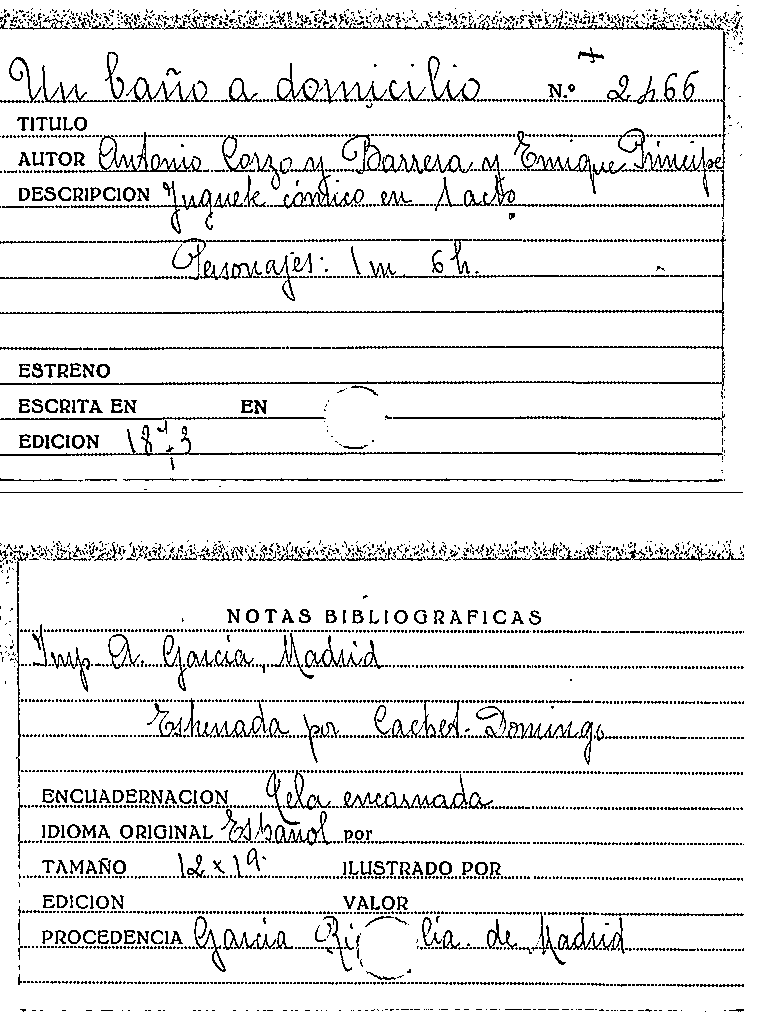 Un baño a domicilio N.º 2466
TITULO
AUTOR Antonio Corzo y Barrera y Enrique Príncipe
DESCRIPCION Juguete cómico en 1 acto
Personajes: 1 m 6 h.
ESTRENO
ESCRITA EN EN
EDICION 1873
NOTAS BIBLIOGRAFICAS
Imp A. García, Madrid
Estrenada por Cachet. Domingo
ENCUADERNACION Tela encarnada
IDIOMA ORIGINAL Español por
TAMAÑO 12 x 19 ILUSTRADO POR
EDICION VALOR
PROCEDENCIA García de Madrid